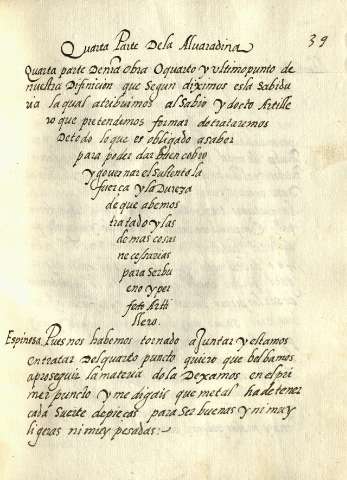 39
Quarta Parte Dela Alvaradina
Quarta parte Denra Obra O quarto y ultimo punto de
nuestra Difinicion que segun diximos es la sabidu
ria la qual atribuimos al Sabio y docto Artille
ro que pretendemos formar do trataremos
De todo lo que es obligado a saber
para poder dar buen cobro
y governar el sustento la
fuerca y la Dureza
de que abemos
tratado y las
de mas cosas
necessarias
para ser bu
eno y per
fecto Arti
llero.
Espinosa. Pues nos habemos tornado a Juntar y estamos
en tratar Del quarto puncto quiero que bolbamos
a proseguir la materia do la Dexamos en el pri
mer puncto y me digais que metal ha de tener
cada suerte de piecas para ser buenas y ni muy
ligeras ni muy pesadas:-